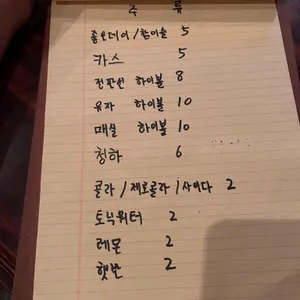 주 류
좋은데이/참이슬 5
카스 5
전판선 하이볼 8
유자 하이볼 10
매실 하이볼 10
청하 6
콜라/제로콜라/사이다 2
토닉워터 2
레몬 2
햇반 2